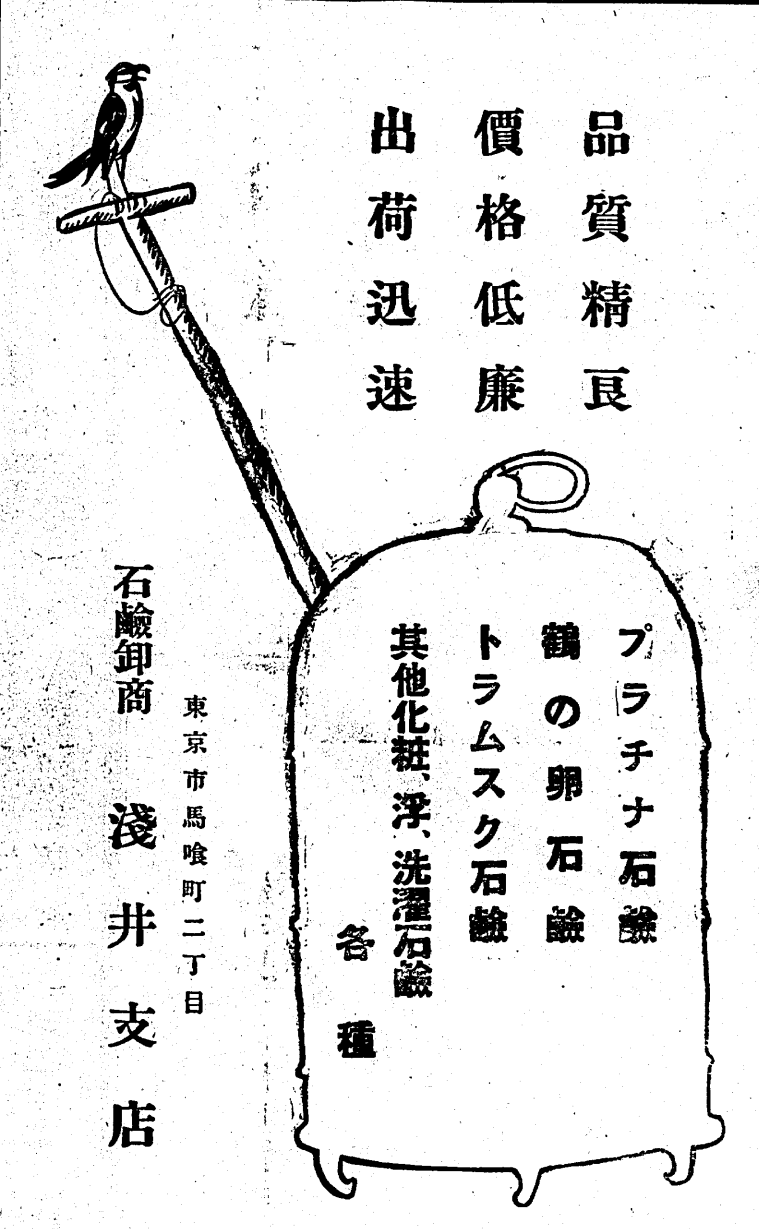 品質精良
價格低廉
出荷迅速
プラチナ石鹼
鶴の卵石鹼
トラムスク石鹼
其他化粧、浮、洗濯石鹼
各種
東京市馬喰町二丁目
石鹼卸商 淺井支店